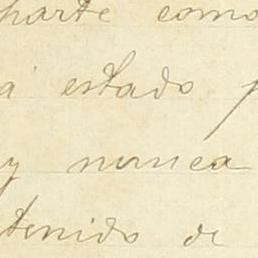 harte como
a estado p
y nunca
tenido de